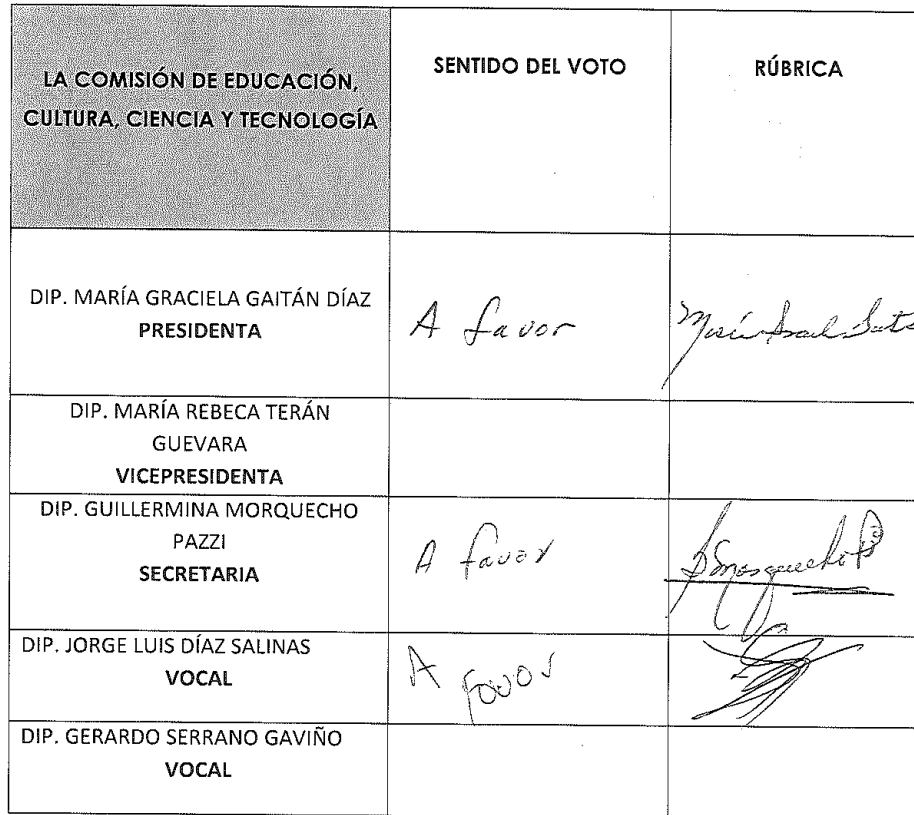 LA COMISIÓN DE EDUCACIÓN,
CULTURA, CIENCIA Y TECNOLOGÍA
SENTIDO DEL VOTO
RÚBRICA
DIP. MARÍA GRACIELA GAITÁN DÍAZ
PRESIDENTA
A favor
DIP. MARÍA REBECA TERÁN
GUEVARA
VICEPRESIDENTA
DIP. GUILLERMINA MORQUECHO
PAZZI
SECRETARIA
A favor
DIP. JORGE LUIS DÍAZ SALINAS
VOCAL
A favor
DIP. GERARDO SERRANO GAVIÑO
VOCAL